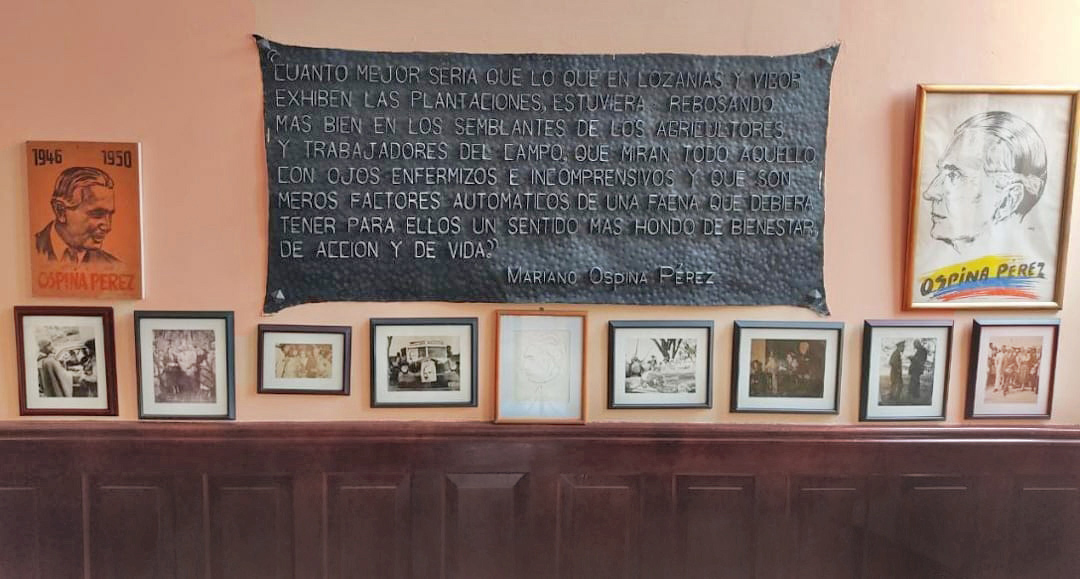 1946 1950
OSPINA PEREZ
CUANTO MEJOR SERIA QUE LO QUE EN LOZANIAS Y VIGOR
EXHIBEN LAS PLANTACIONES, ESTUVIERA REBOSANDO
MAS BIEN EN LOS SEMBLANTES DE LOS AGRICULTORES
Y TRABAJADORES DEL CAMPO, QUE MIRAN TODO AQUELLO
CON OJOS ENFERMIZOS E INCOMPRENSIVOS Y QUE SON
MEROS FACTORES AUTOMATICOS DE UNA FAENA QUE DEBIERA
TENER PARA ELLOS UN SENTIDO MAS HONDO DE BIENESTAR,
DE ACCION Y DE VIDA."
MARIANO OSPINA PÉREZ
OSPINA PÉREZ